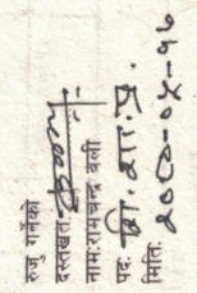 रुजु गर्नेको
दस्तखत:
नाम: रामचन्द्र वली
पद: वि. शा. प्र.
मिति: २०८०-०५-१७